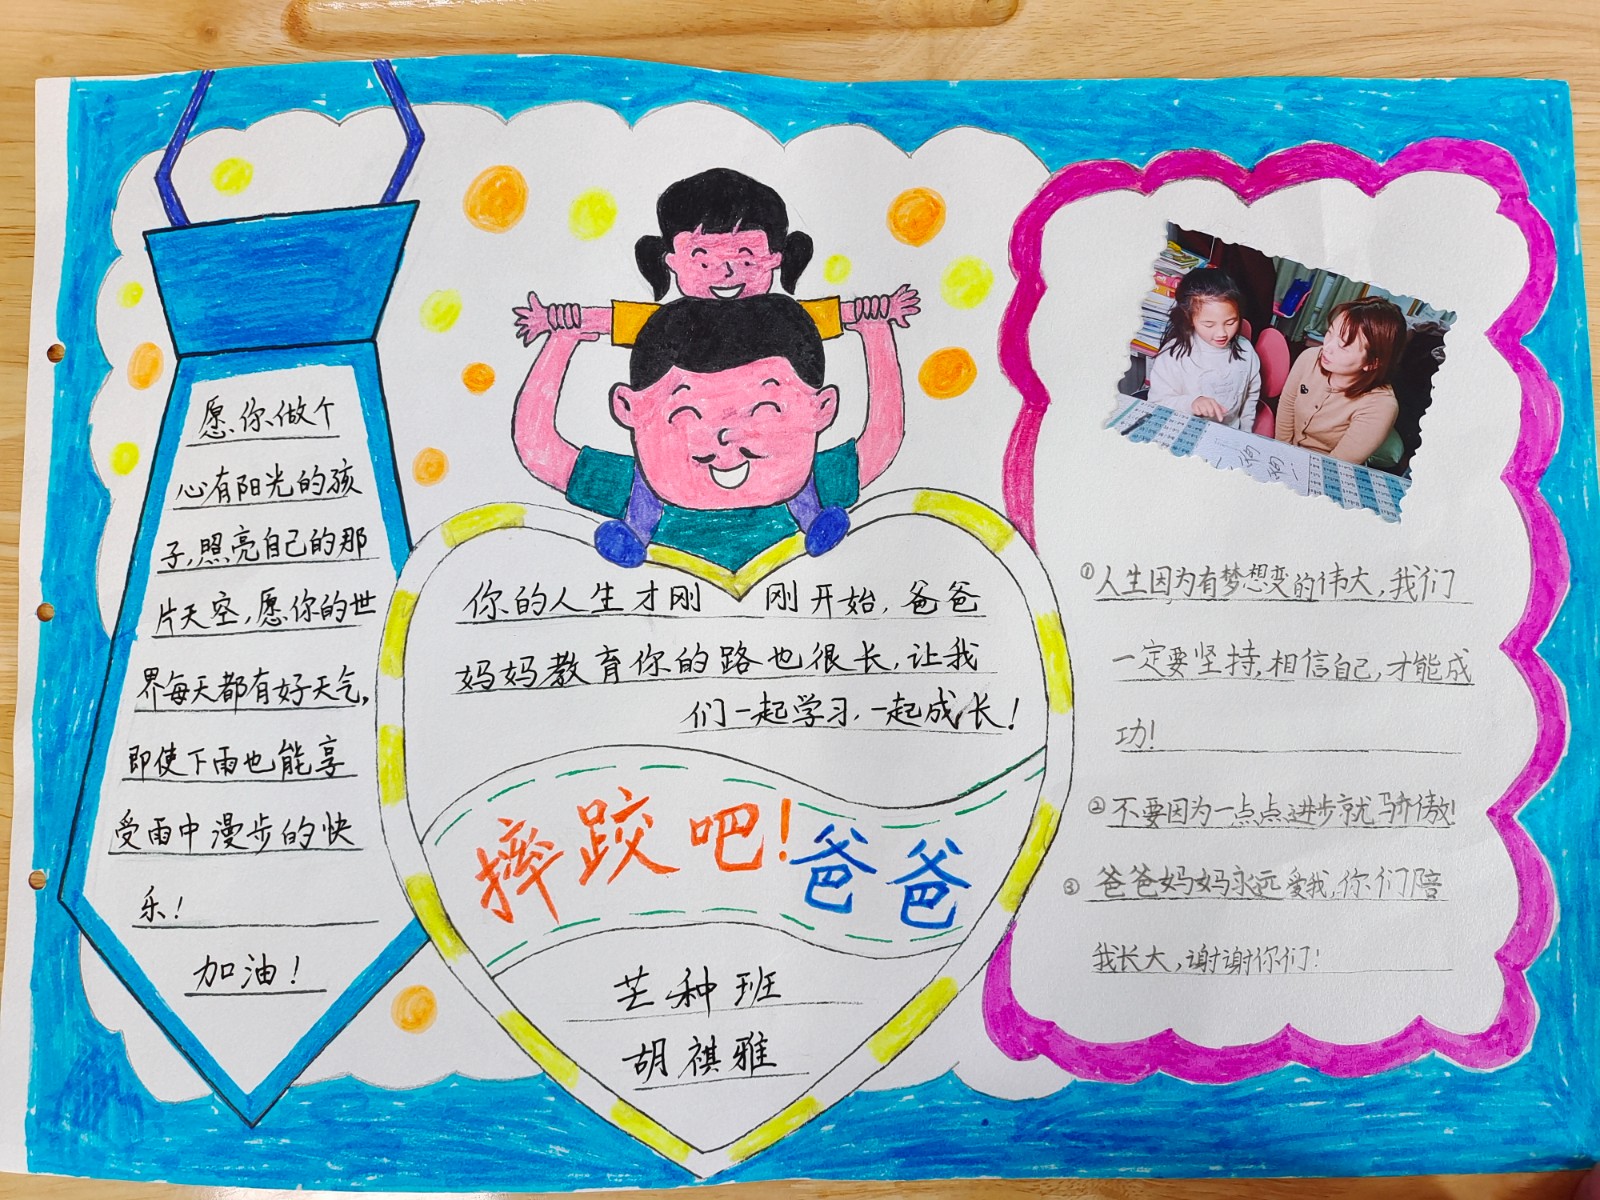 愿你做个
心有阳光的孩
子,照亮自己的那
片天空,愿你的世
界每天都有好天气,
即使下雨也能享
受雨中漫步的快
乐!
加油!
你的人生才刚刚开始,爸爸
妈妈教育你的路也很长,让我
们一起学习,一起成长!
摔跤吧!爸爸
芒种班
胡祺雅
①人生因为有梦想变的伟大,我们
一定要坚持,相信自己,才能成
功!
②不要因为一点点进步就骄傲!
③爸爸妈妈永远爱我,你们陪
我长大,谢谢你们!